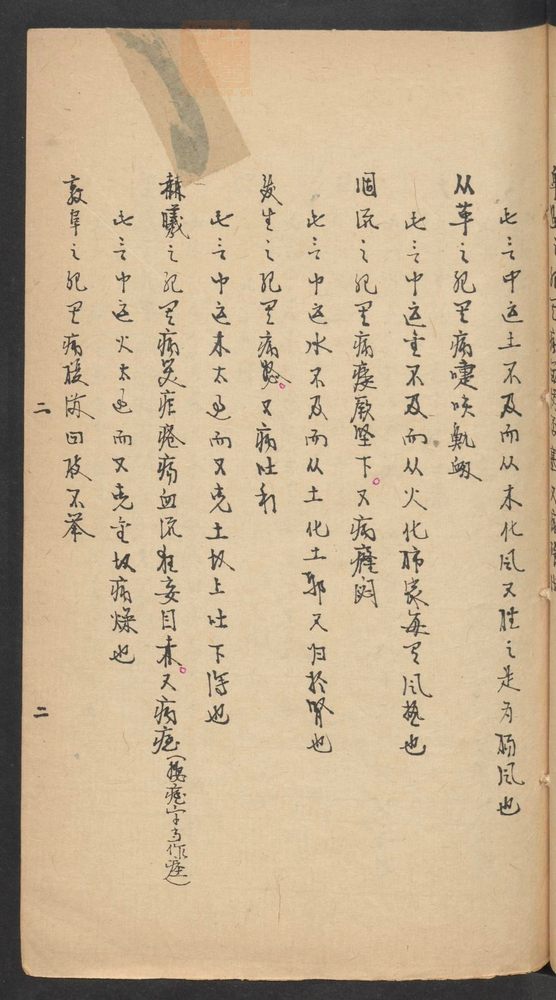 此言中运土不及而从木化风又胜之是为肠风也
从革之纪里病嚏咳鼽衄
此言中运金不及而从火化肺家每多风热也
涸流之纪里病痿厥坚下又病癃闭
此言中运水不及而从土化土邪又归於肾也
发生之纪里病怒又病吐利
此言中运木太过而又克土故上吐下泻也
赫曦之纪里病笑疟疮疡血流狂妄目赤又病痓
此言中运火太过而又克金故病燥也
敦阜之纪里病腹满四肢不举
二
二